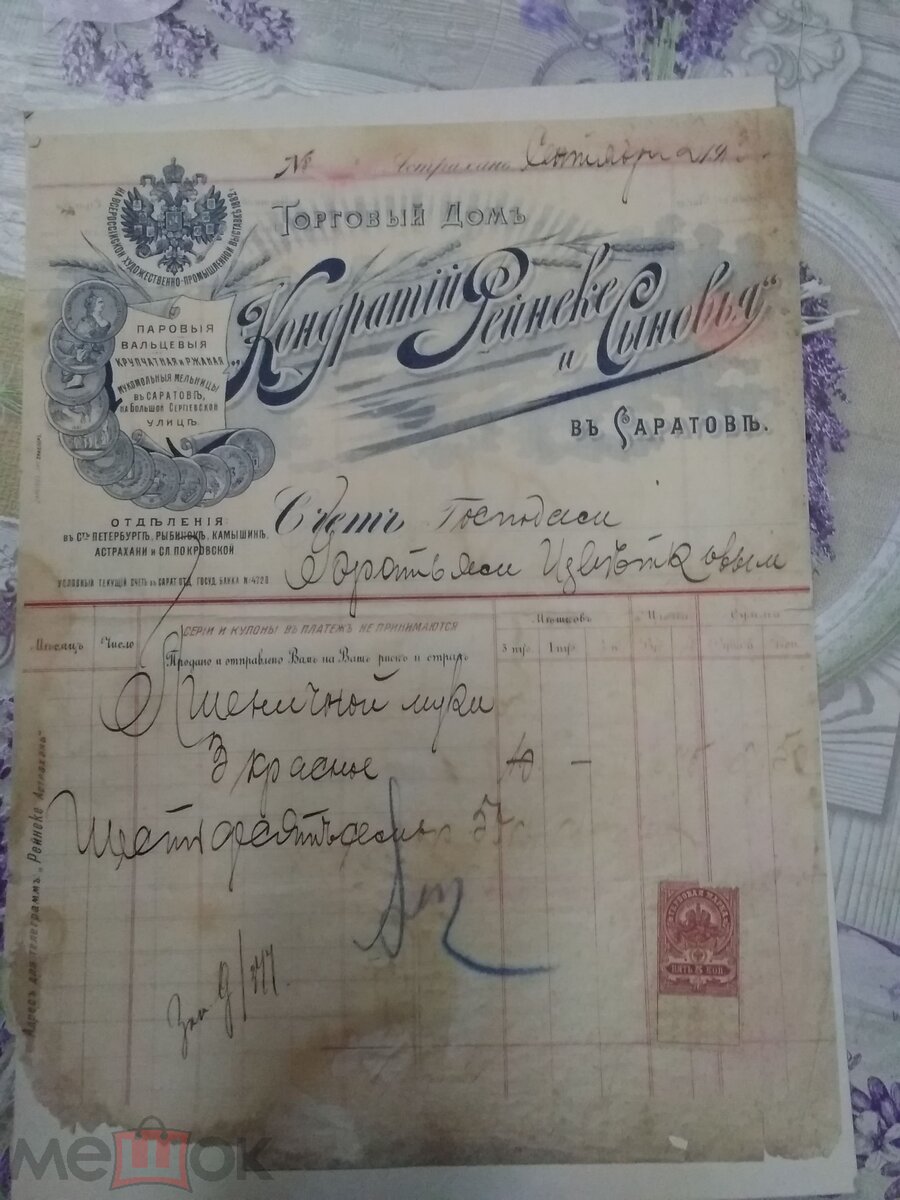 № Астрахань, Сентября 2 19
НА ВСЕРОССІЙСКОЙ ХУДОЖЕСТВЕННО-ПРОМЫШЛЕННОЙ ВЫСТАВКѢ 1882.
ТОРГОВЫЙ ДОМЪ
„Кондратій Рейнеке
и Сыновья“
ВЪ САРАТОВѢ.
ПАРОВЫЯ
ВАЛЬЦЕВЫЯ
КРУПЧАТНАЯ И РЖАНАЯ
МУКОМОЛЬНЫЯ МЕЛЬНИЦЫ
ВЪ САРАТОВѢ,
НА БОЛЬШОЙ СЕРГІЕВСКОЙ
УЛИЦѢ.
ОТДѢЛЕНІЯ:
ВЪ С.ПЕТЕРБУРГѢ, РЫБИНСКѢ, КАМЫШИНѢ,
АСТРАХАНИ И СЛ. ПОКРОВСКОЙ
УСЛОВНЫЙ ТЕКУЩІЙ СЧЕТЪ ВЪ САРАТ. ОТД. ГОСУД. БАНКА № 4720
Счетъ Господами
Братьями Цвѣтковымъ
СЕРІИ И КУПОНЫ ВЪ ПЛАТЕЖЪ НЕ ПРИНИМАЮТСЯ
Мѣсяцъ Число Продано и отправлено Вамъ на Вашъ рискъ и страхъ
Мѣшковъ Цѣна Сумма
3 пуд. 1 пуд. Коп.
Пшеничной муки
3 красное 10 —
Адресъ для телеграммъ „Рейнеке Астрахань“
ГЕРБОВАЯ МАРКА
ПЯТЬ 5 КОП
мешок